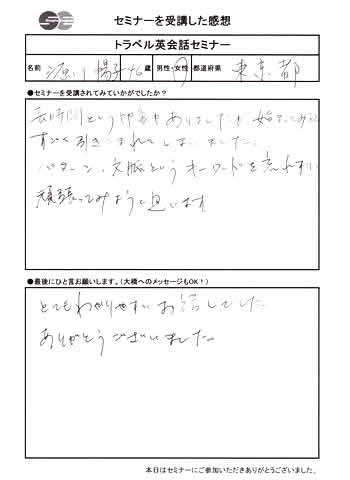 セミナーを受講した感想
トラベル英会話セミナー
名前 歳 男性・女性 都道府県 東京都
●セミナーを受講されてみていかがでしたか？
長時間という ありましたが 始まってみると
すごく引きこまれてしまいました。
パターン、文脈というキーワードを忘れずに
頑張ってみようと思います
●最後にひと言お願いします。（大橋へのメッセージもOK！）
とてもわかりやすいお話しでした。
ありがとうございました。
本日はセミナーにご参加いただきありがとうございました。